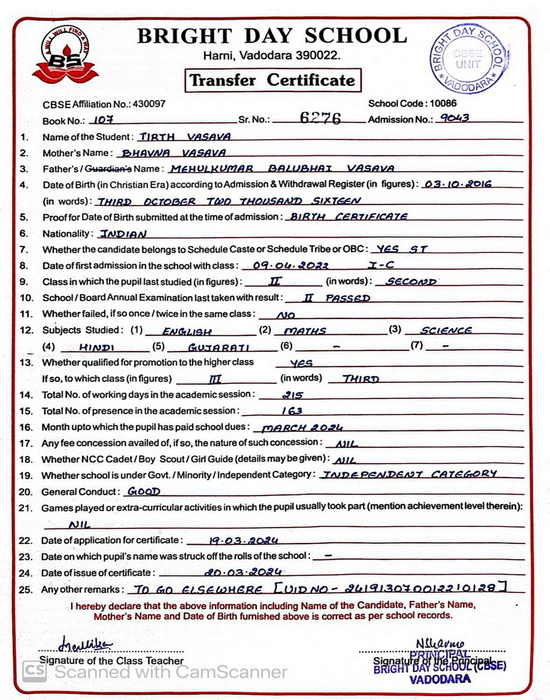 A WILL WILL FIND A WAY
BS
BRIGHT DAY SCHOOL
Harni, Vadodara 390022.
Transfer Certificate
BRIGHT DAY SCHOOL
CBSE
UNIT
VADODARA
CBSE Affiliation No.: 430097 School Code : 10086
Book No.: 107 Sr. No.: 6276 Admission No.: 9043
1. Name of the Student : TIRTH VASAVA
2. Mother's Name : BHAVNA VASAVA
3. Father's / Guardian's Name : MEHULKUMAR BALUBHAI VASAVA
4. Date of Birth (in Christian Era) according to Admission & Withdrawal Register (in figures) : 03.10.2016
(in words) : THIRD OCTOBER TWO THOUSAND SIXTEEN
5. Proof for Date of Birth submitted at the time of admission : BIRTH CERTIFICATE
6. Nationality : INDIAN
7. Whether the candidate belongs to Schedule Caste or Schedule Tribe or OBC : YES ST
8. Date of first admission in the school with class : 09.04.2022 I-C
9. Class in which the pupil last studied (in figures) : II (in words) : SECOND
10. School / Board Annual Examination last taken with result : II PASSED
11. Whether failed, if so once / twice in the same class : NO
12. Subjects Studied : (1) ENGLISH (2) MATHS (3) SCIENCE
(4) HINDI (5) GUJARATI (6) - (7) -
13. Whether qualified for promotion to the higher class YES
If so, to which class (in figures) III (in words) THIRD
14. Total No. of working days in the academic session : 215
15. Total No. of presence in the academic session : 163
16. Month upto which the pupil has paid school dues : MARCH 2024
17. Any fee concession availed of, if so, the nature of such concession : NIL
18. Whether NCC Cadet / Boy Scout / Girl Guide (details may be given) : NIL
19. Whether school is under Govt. / Minority / Independent Category : INDEPENDENT CATEGORY
20. General Conduct : GOOD
21. Games played or extra-curricular activities in which the pupil usually took part (mention achievement level therein):
NIL
22. Date of application for certificate : 19.03.2024
23. Date on which pupil's name was struck off the rolls of the school : -
24. Date of issue of certificate : 20.03.2024
25. Any other remarks : TO GO ELSEWHERE [UID NO - 2419130700122​10128]
I hereby declare that the above information including Name of the Candidate, Father's Name,
Mother's Name and Date of Birth furnished above is correct as per school records.
Signature of the Class Teacher Signature of the Principal
PRINCIPAL
BRIGHT DAY SCHOOL (CBSE)
VADODARA
CS Scanned with CamScanner